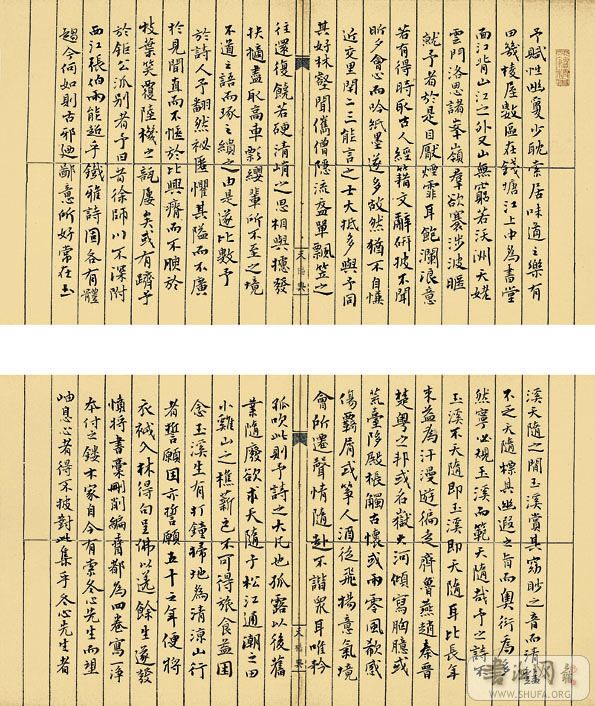 予賦性幽夐少耽索居味道之樂有
田幾稜屋數區在錢塘江上中為書堂
面江背山江之外又山無窮若沃洲天姥
雲門洛思諸峯嶺羣欲褰涉波
就予者於是目厭煙霏耳飽瀾浪意
若有得時取古人經籍文辭研披不閒
昕夕會心而吟紙墨遂多故然猶不自慎
近交里閈二三能言之士大抵多與予同
其好林壑間僑僧隱流盋單瓢笠之
往還復饒苦硬清峭之思相與攄發
抉擿盡取高車影纓輩所不至之境
不道之語而琢之繢之由是遂比數予
於詩人予翻然袐匿懼其隘而不廣
於見聞直而不愜於比興癠而不腴於
枝葉笑覆陸機之瓿屢矣或有躋予
於鉅公派别者予曰昔徐師川不深附
西江張伯雨能超乎鐵雅詩固各有體
趨今何如則古邪廼鄙意所好常在玉
溪天隨之間玉溪賞其窈眇之音而清豔
不乏天隨標其幽遐之旨而奧衍為
然寧必規玉溪而範天隨哉予之詩
玉溪不天隨即玉溪即天隨耳比長年
來益為汗漫遊徧走齊魯燕趙秦晉
楚粵之邦或名嶽大河傾寫胸臆或
荒臺陊殿棖觸古懷或雨零風欷感
傷羈屑或箏人酒徒飛揚意氣境
會所遷聲情隨赴不諧衆耳唯矜
孤吹此則予詩之大凡也孤露以後舊
業隨廢欲求天隨子松江通潮之田
小雞山之樵薪已不可得旅食益困
念玉溪生有打鐘掃地為清涼山行
者誓願因亦誓願五十三年便將
衣裓入林得句呈佛以送餘生遂發
憤將書橐刪削編膋都為四卷寫一淨
本付之鏤木家自今有索冬心先生而坐
岫息心者得不披對此集乎冬心先生者
書法網
WWW.SHUFA.ORG